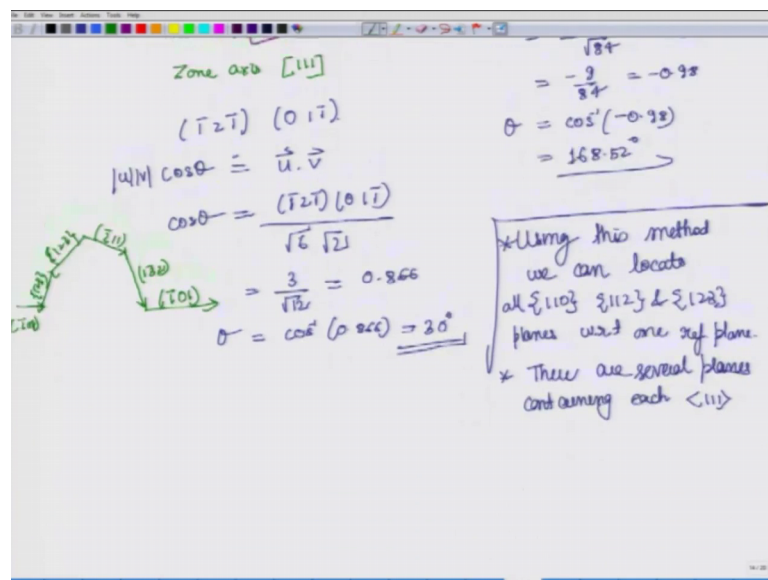 File Edit View Insert Actions Tools Help
Zone axis [111]
(1̄21̄) (011̄)
|u||v| cosθ = u⃗.v⃗
cosθ = (1̄21̄)(011̄)
√6 √2
= 3/√12 = 0.866
θ = cos⁻¹ (0.866) = 30°
(2̄11)
(132)
(1̄01)
√84
= -9/84 = -0.98
θ = cos⁻¹(-0.98)
= 168.52°
*Using this method
we can locate
all {110} {112} & {123}
planes wrt one ref plane.
* There are several planes
containing each <111>